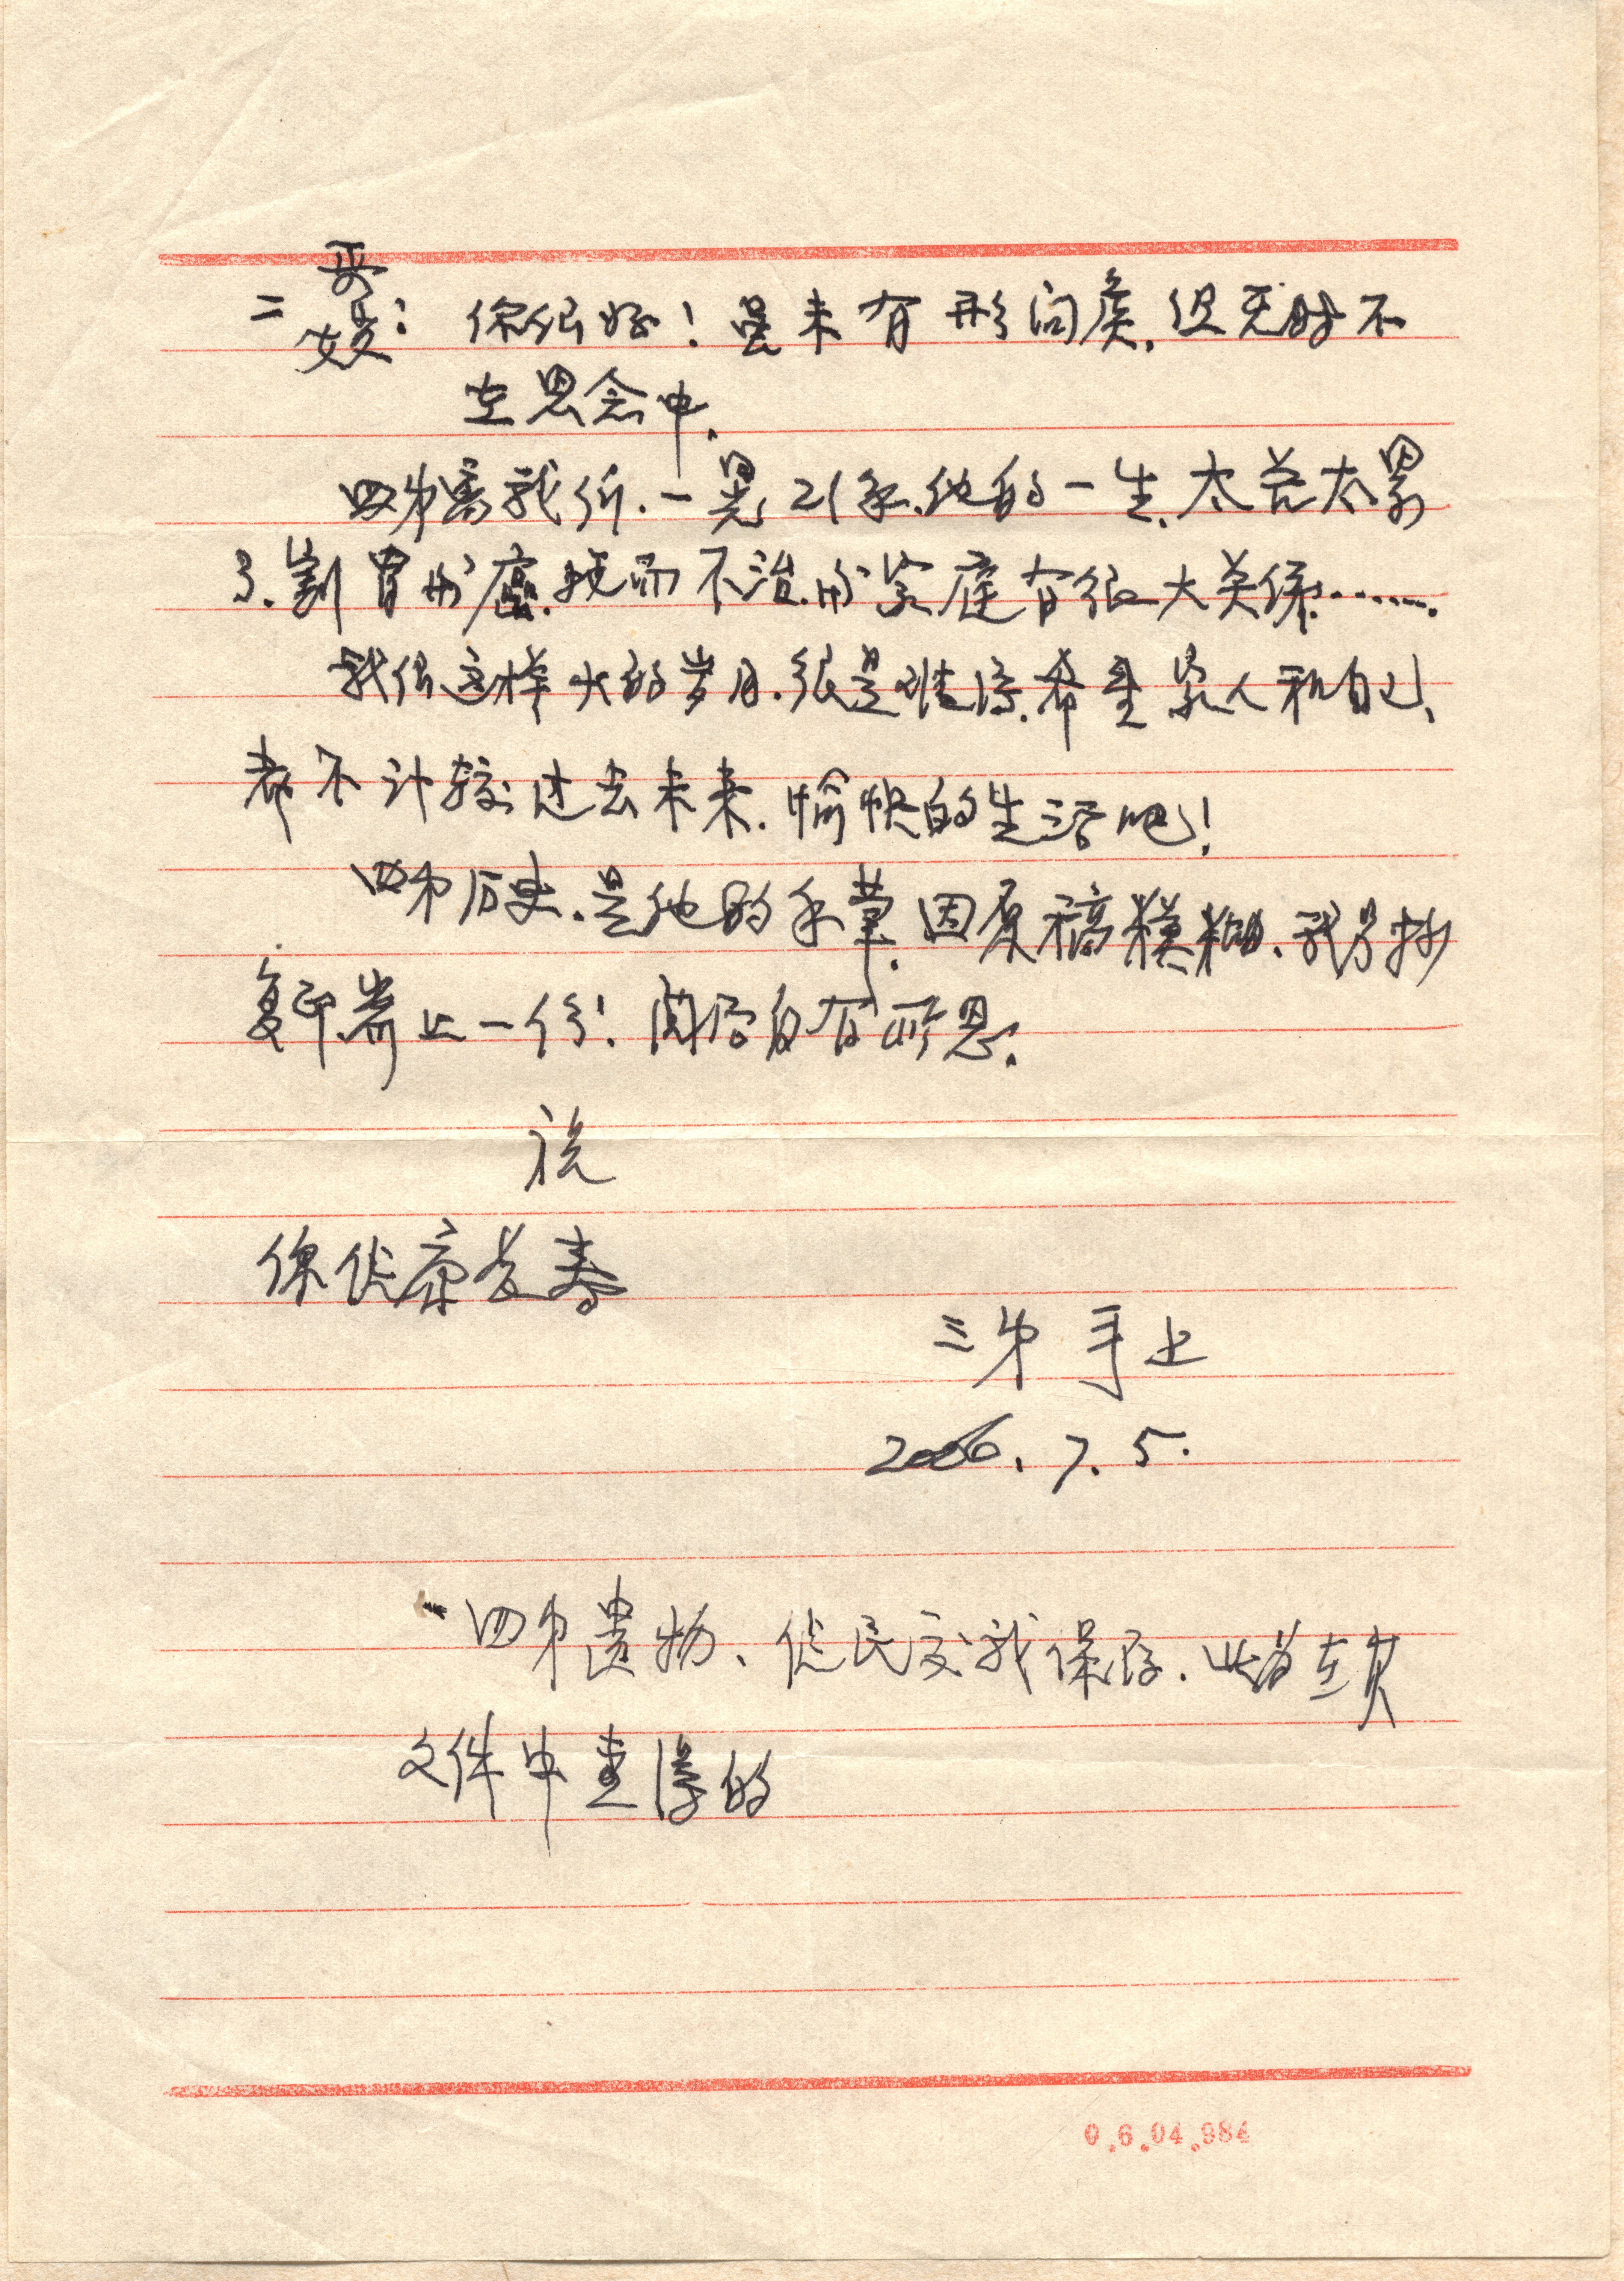 二哥嫂：你们好！虽未有形问候.但无时不
在思念中.
四弟离我们.一晃21年.他的一生.太苦太累
了.割胃的癌.既而不治.的家庭有很大关系……
我们这样大的岁月.很是难得.希望家人和自己、
都不计较过去未来.愉快的生活吧！
四弟历史.是他的手草.因原稿模糊.我另抄
复印.寄上一份！阅后自有所思.
祝
你们健康长寿
三弟 手上
2006.7.5.
四弟遗物、佐民交我保存.此为在其
文件中查得的
0.6.04.984